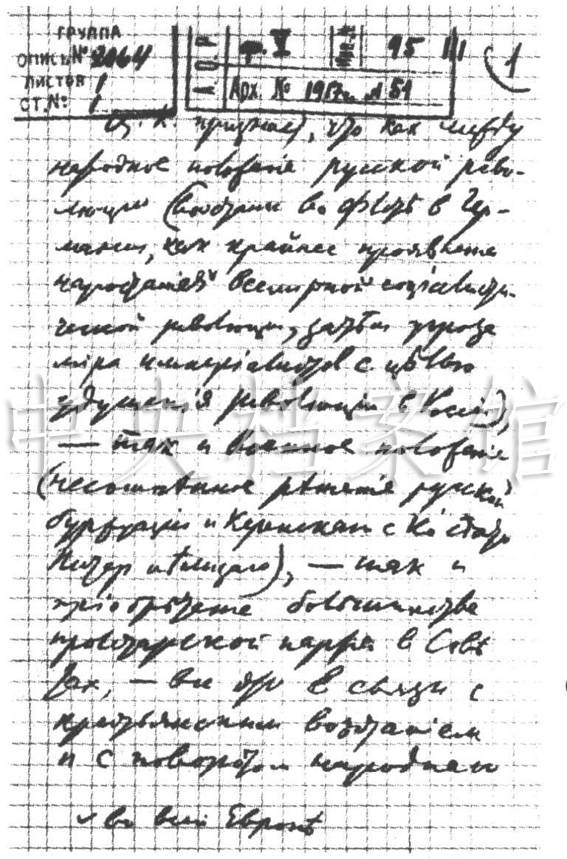 ГРУППА
ОПИСЬ № 2064
ЛИСТОВ 1
СТ. №: 1
ф. V
95 III
1
Арх. № 1917 г. № 51
Ц. К. признает, что как между
народное положеніе русской рево-
люціи (возстаніе во флотѣ в Гер-
маніи, как крайнее проявленіе
наростанія всемірной соціалисти-
ческой революціи, затѣм угроза
міра имперіалистов с цѣлью
удушенія революціи в Россіи),
— так и военное положеніе
(несомнѣнное рѣшеніе русской
буржуазіи и Керенскаго с Ко сдать
Питер нѣмцам), — так и
пріобрѣтеніе большинства
пролетарской партіей в Совѣ
тах, — все это в связи с
крестьянским возстаніем
и с поворотом народнаго
во всей Европѣ
中央档案馆